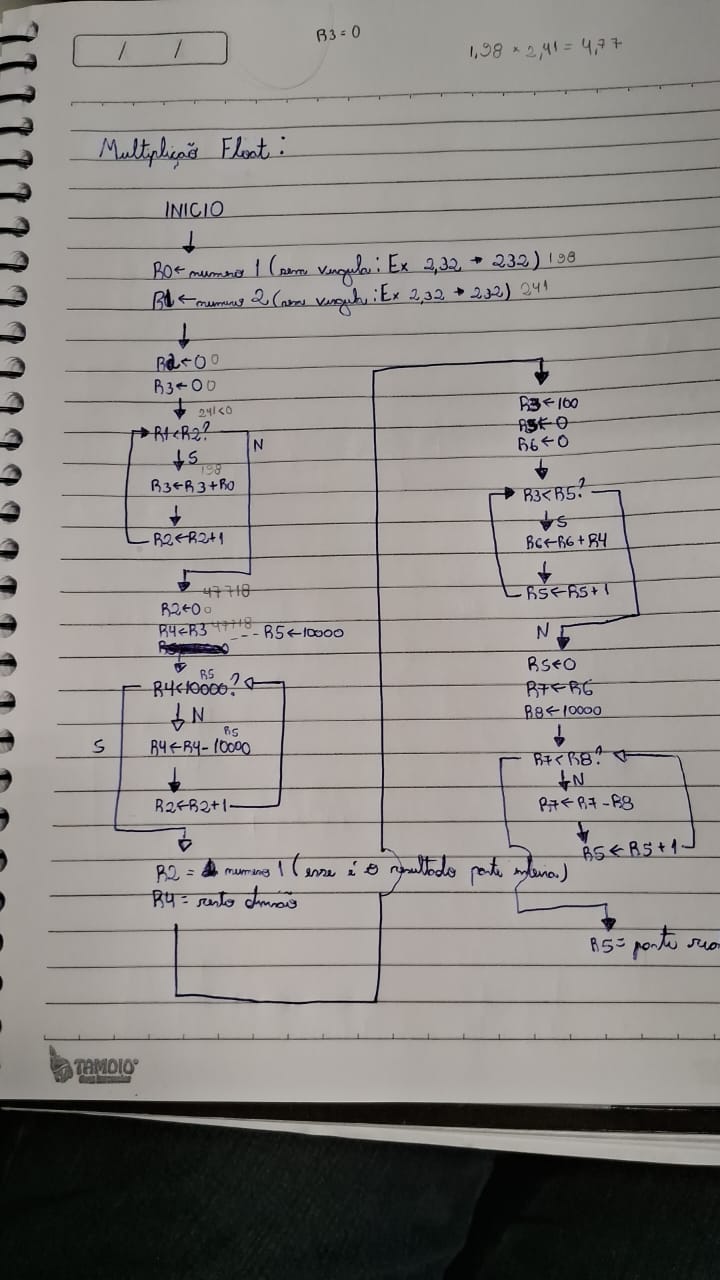 R3 = 0
1,98 × 2,41 = 4,77
/ /
Multiplição Float:
INICIO
R0 ← numero 1 (sem virgula: Ex 2,32 → 232) 198
R1 ← numero 2 (sem virgula: Ex 2,32 → 232) 241
R2 ← 0 0
R3 ← 0 0
241<0
R1<R2?
N
S
198
R3 ← R3 + R0
R2 ← R2 + 1
47718
R2 ← 0 0
R4 ← R3 47718 --- R5 ← 10000
R5
R4<10000?
N
R5
S
R4 ← R4 - 10000
R2 ← R2 + 1
R2 = numero 1 (esse é o resultado parte inteira)
R4 = resto divisão
R3 ← 100
R5 ← 0
R6 ← 0
R3<R5?
S
R6 ← R6 + R4
R5 ← R5 + 1
N
R5 ← 0
R7 ← R6
R8 ← 10000
R7<R8?
N
R7 ← R7 - R8
R5 ← R5 + 1
R5 = parte
TAMOIO